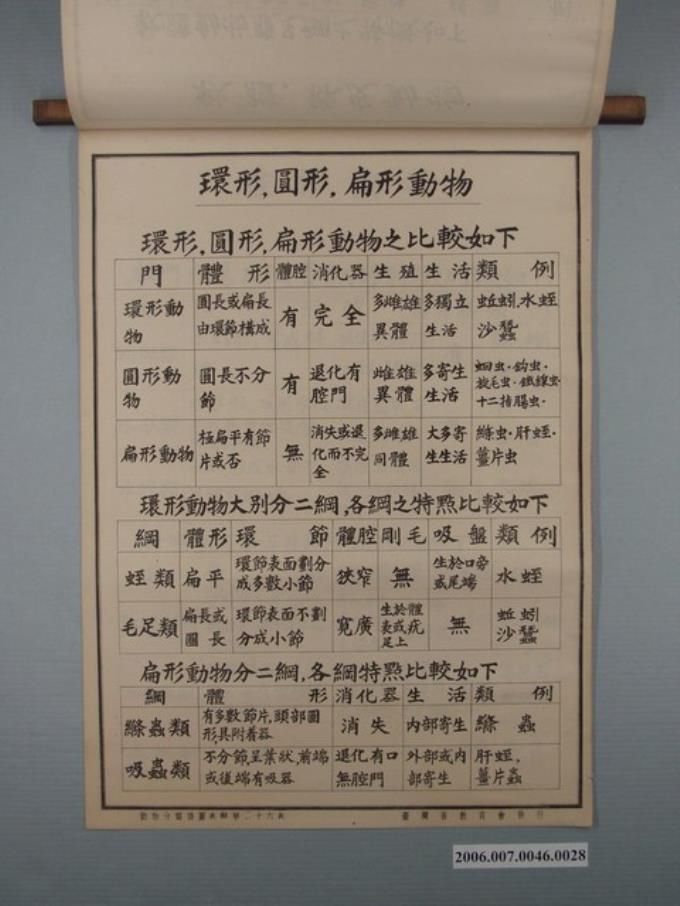 環形,圓形,扁形動物
環形,圓形,扁形動物之比較如下
門 體形 體腔 消化器 生殖 生活 類例
環形動物 圓長或扁長由環節構成 有 完全 多雌雄異體 多獨立生活 蚯蚓,水蛭沙蠶
圓形動物 圓長不分節 有 退化有腔門 雌雄異體 多寄生生活 蛔虫·鉤虫·旋毛虫·鐵線虫·十二指腸虫·
扁形動物 極扁平有節片或否 無 消失或退化而不完全 多雌雄同體 大多寄生生活 絛虫·肝蛭·薑片虫
環形動物大別分二綱,各綱之特點比較如下
綱 體形 環節 體腔 剛毛 吸盤 類例
蛭類 扁平 環節表面劃分成多數小節 狹窄 無 生於口旁或尾端 水蛭
毛足類 扁長或圓長 環節表面不劃分成小節 寬廣 生於體表或疣足上 無 蚯蚓沙蠶
扁形動物分二綱,各綱特點比較如下
綱 體形 消化器 生活 類例
絛蟲類 有多數節片,頭部圓形,具附着器 消失 內部寄生 絛蟲
吸蟲類 不分節,呈葉狀,前端或後端有吸器 退化,有口無腔門 外部或內部寄生 肝蛭,薑片蟲
動物分類掛圖 第二十六表 臺灣省教育會發行
2006.007.0046.0028